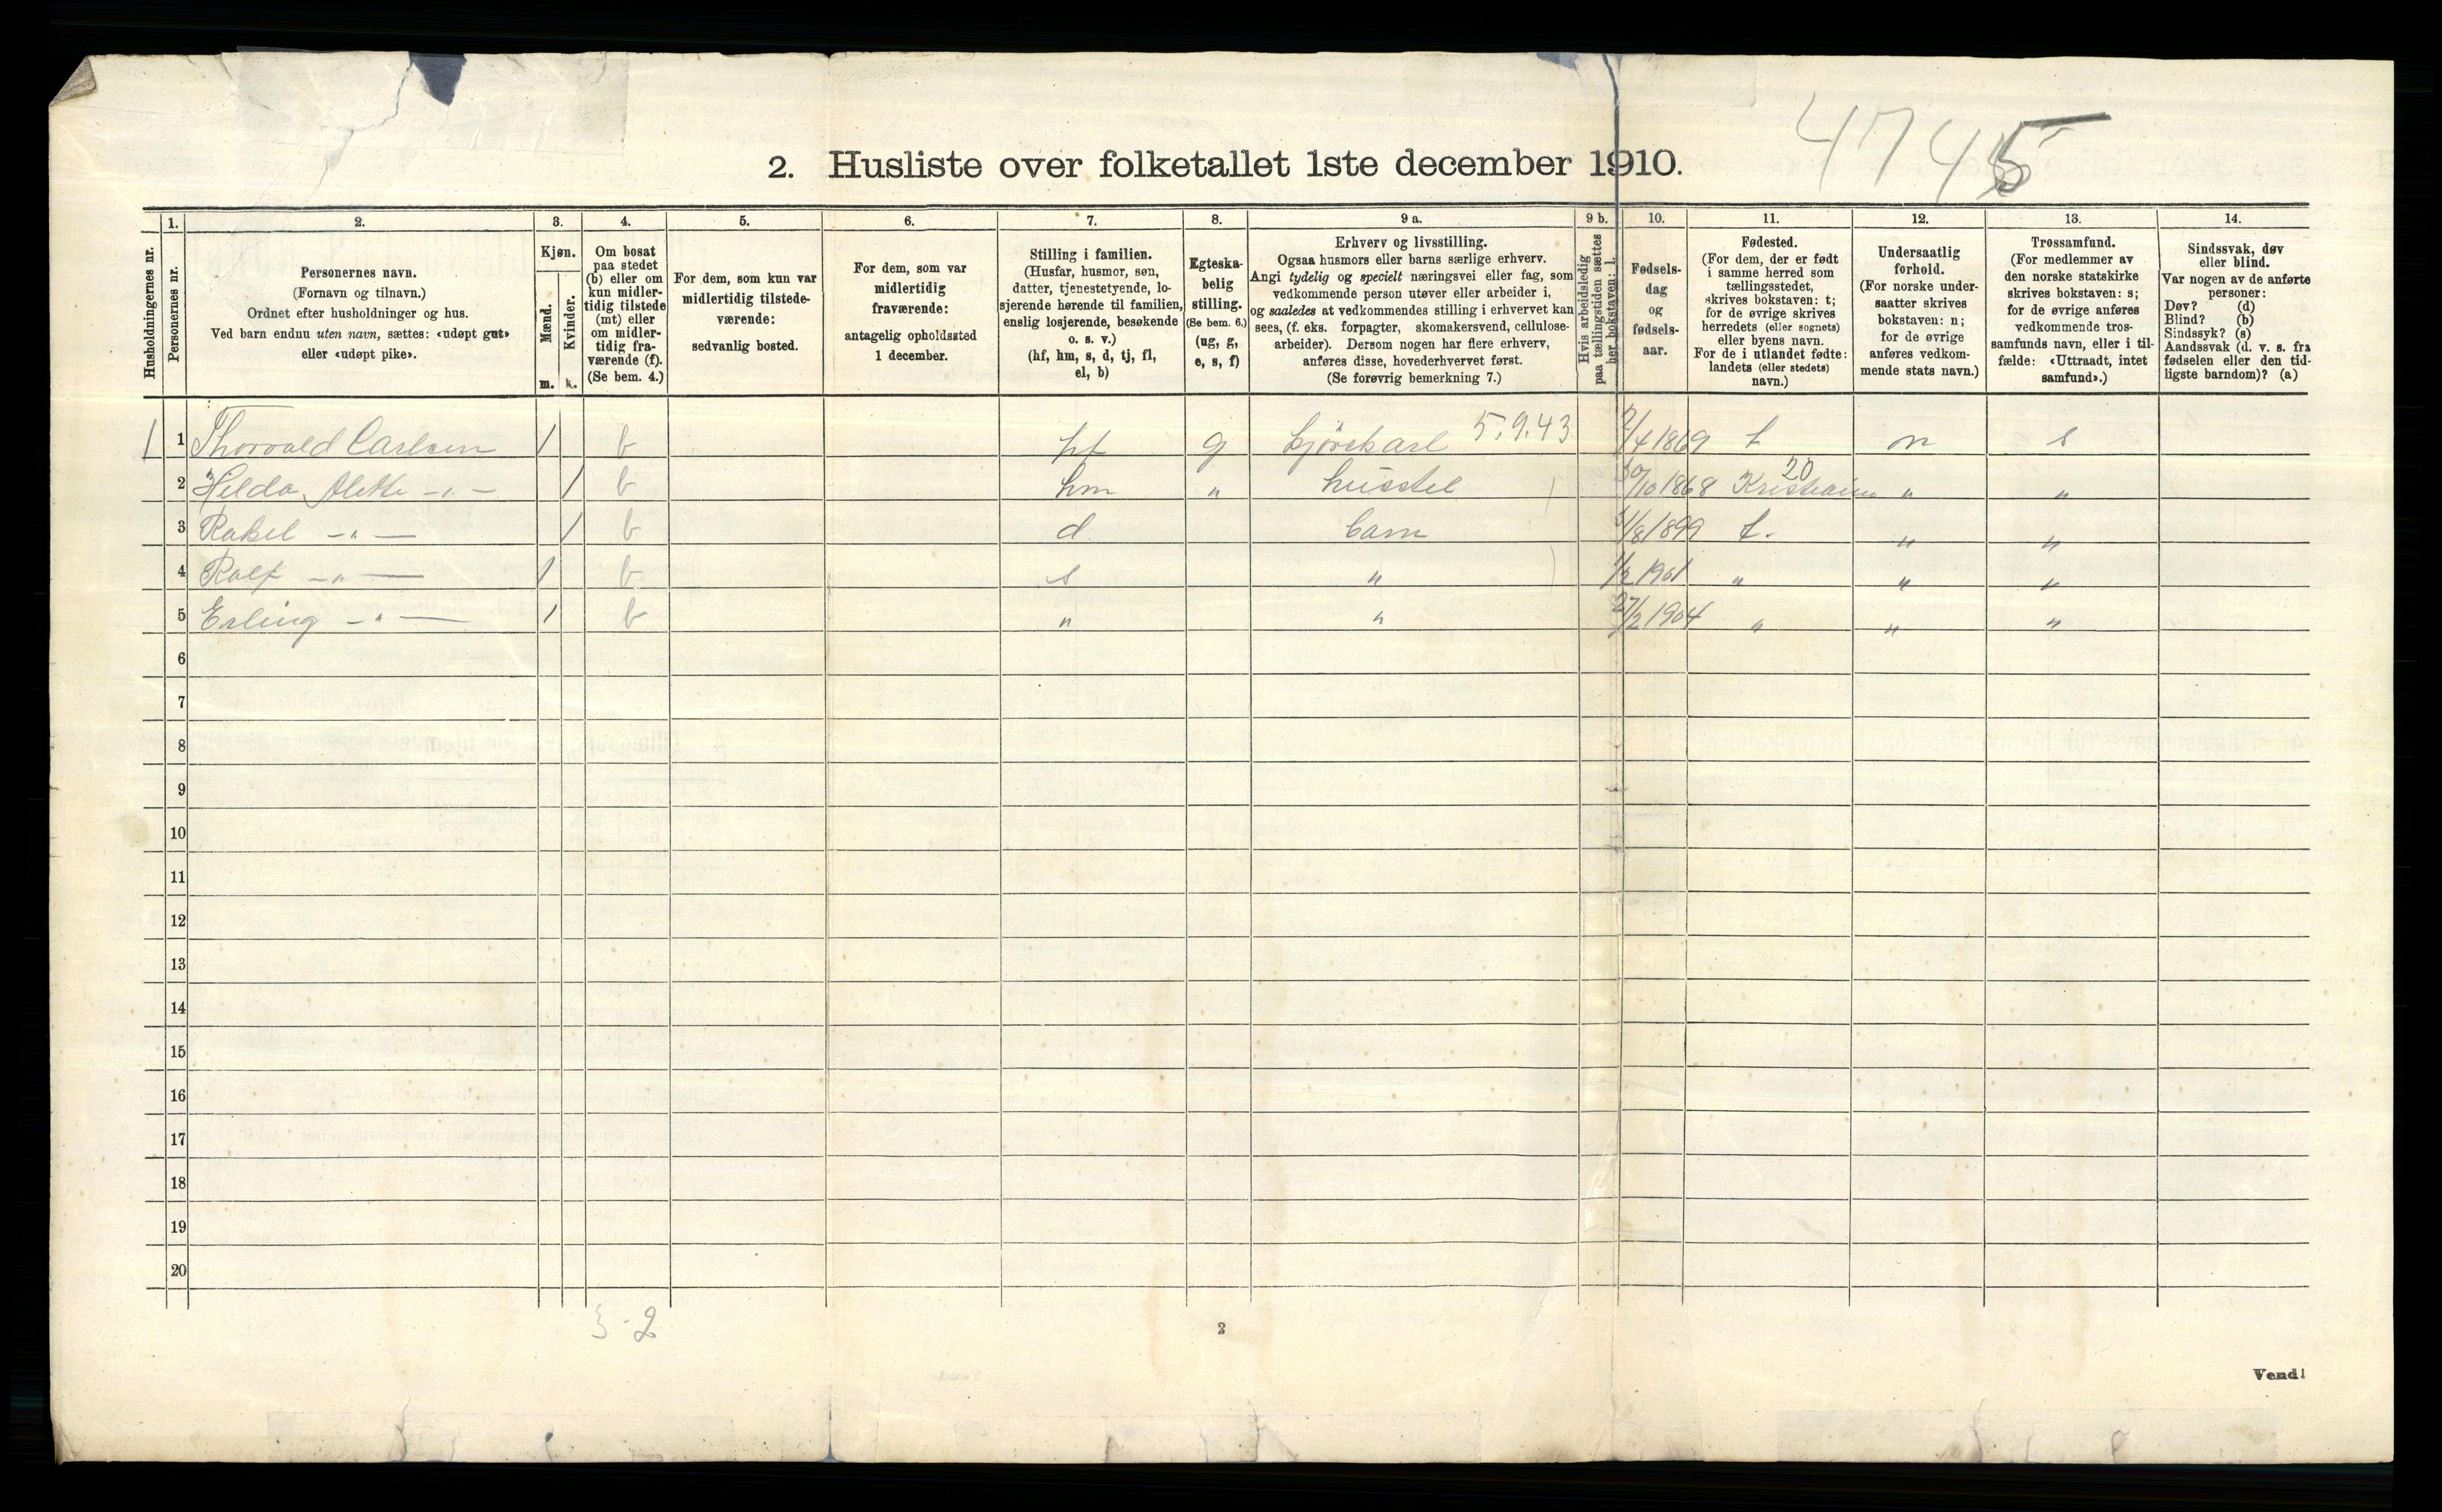 4745
2. Husliste over folketallet 1ste december 1910.
Husholdningernes nr.
1. Personernes nr.
2. Personernes navn.
(Fornavn og tilnavn.)
Ordnet efter husholdninger og hus.
Ved barn endnu uten navn, sættes: «udøpt gut»
eller «udøpt pike».
3. Kjøn.
Mænd. m.
Kvinder. k.
4. Om bosat
paa stedet
(b) eller om
kun midler-
tidig tilstede
(mt) eller
om midler-
tidig fra-
værende (f).
(Se bem. 4.)
5. For dem, som kun var
midlertidig tilstede-
værende:
sedvanlig bosted.
6. For dem, som var
midlertidig
fraværende:
antagelig opholdssted
1 december.
7. Stilling i familien.
(Husfar, husmor, søn,
datter, tjenestetyende, lo-
sjerende hørende til familien,
enslig losjerende, besøkende
o. s. v.)
(hf, hm, s, d, tj, fl,
el, b)
8. Egteska-
belig
stilling.
(Se bem. 6.)
(ug, g,
e, s, f)
9 a. Erhverv og livsstilling.
Ogsaa husmors eller barns særlige erhverv.
Angi tydelig og specielt næringsvei eller fag, som
vedkommende person utøver eller arbeider i,
og saaledes at vedkommendes stilling i erhvervet kan
sees, (f. eks. forpagter, skomakersvend, cellulose-
arbeider). Dersom nogen har flere erhverv,
anføres disse, hovederhvervet først.
(Se forøvrig bemerkning 7.)
9 b. Hvis arbeidsledig
paa tællingstiden sættes
her bokstaven: l.
10. Fødsels-
dag
og
fødsels-
aar.
11. Fødested.
(For dem, der er født
i samme herred som
tællingsstedet,
skrives bokstaven: t;
for de øvrige skrives
herredets (eller sognets)
eller byens navn.
For de i utlandet fødte:
landets (eller stedets)
navn.)
12. Undersaatlig
forhold.
(For norske under-
saatter skrives
bokstaven: n;
for de øvrige
anføres vedkom-
mende stats navn.)
13. Trossamfund.
(For medlemmer av
den norske statskirke
skrives bokstaven: s;
for de øvrige anføres
vedkommende tros-
samfunds navn, eller i til-
fælde: «Uttraadt, intet
samfund».)
14. Sindssvak, døv
eller blind.
Var nogen av de anførte
personer:
Døv? (d)
Blind? (b)
Sindssyk? (s)
Aandssvak (d. v. s. fra
fødselen eller den tid-
ligste barndom)? (a)
1 1 Thorvald Carlsen 1 b hf g kjørekarl 5.9.43 2/4 1869 t n s
2 Hilda Alette -"- 1 b hm " husstel 30/10 1868 Kristiania 20 " "
3 Rakel -"- 1 b d barn 31/8 1899 t. " "
4 Rolf -"- 1 b s " 1/2 1901 " " "
5 Erling -"- 1 b " " 27/2 1904 " " "
6
7
8
9
10
11
12
13
14
15
16
17
18
19
20
3-2
2
Vend!